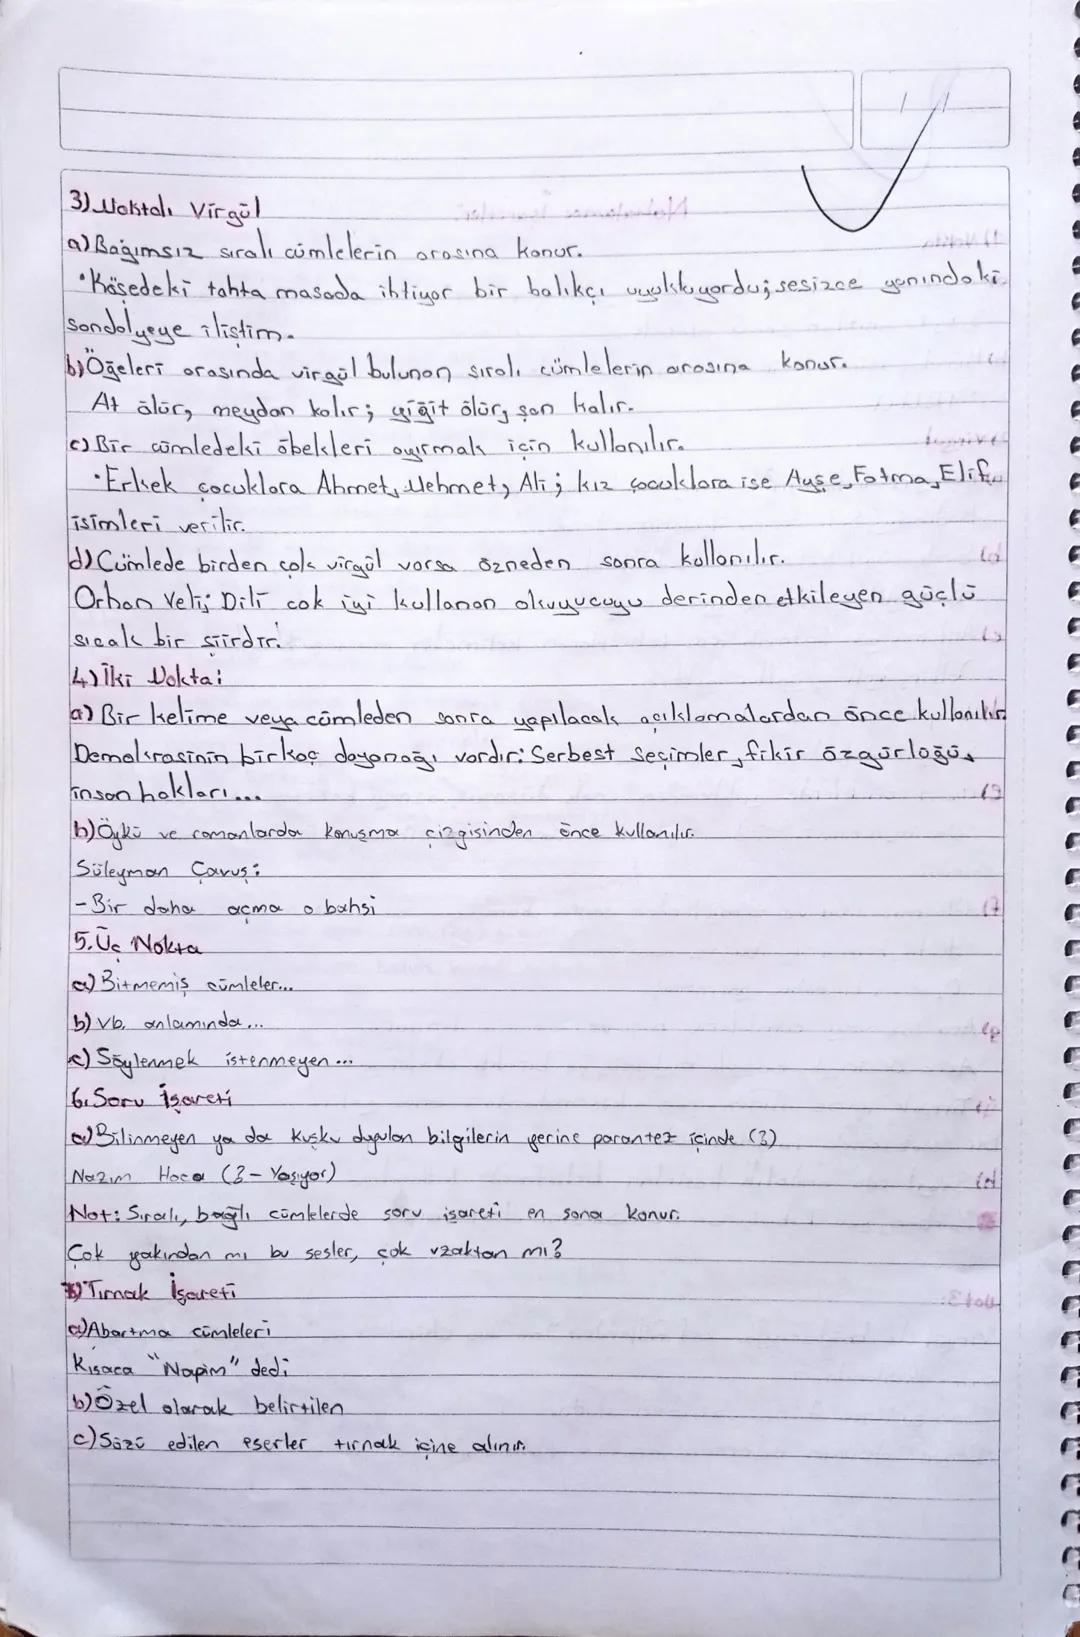 3) Noktalı Virgül
a) Bağımsız sıralı cümlelerin arasına konur.
• Köşedeki tahta masada ihtiyar bir balıkçı uyukluyordu; sesizce yanındaki
sandalyeye iliştim.
b) Öğeleri arasında virgül bulunan sıralı cümlelerin arasına konur.
At ölür, meydan kalır; yiğit ölür, şan kalır.
c) Bir cümledeki öbekleri ayırmak için kullanılır.
• Erkek çocuklara Ahmet, Mehmet, Ali; kız çocuklara ise Ayşe, Fatma, Elif
isimleri verilir.
d) Cümlede birden çok virgül varsa özneden sonra kullanılır.
Orhan Veli; Dili çok iyi kullanan okuyucuyu derinden etkileyen güçlü
sıcak bir şiirdir.
4) İki Nokta:
a) Bir kelime veya cümleden sonra yapılacak açıklamalardan önce kullanılır
Demokrasinin birkaç dayanağı vardır: Serbest seçimler, fikir özgürlüğü,
insan hakları...
b) Öykü ve romanlarda konuşma çizgisinden önce kullanılır.
Süleyman Çavuş:
- Bir daha açma o bahsi
5. Üç Nokta
a) Bitmemiş cümleler...
b) vb. anlamında...
c) Söylenmek istenmeyen...
6. Soru İşareti
a) Bilinmeyen ya da kuşku duyulan bilgilerin yerine parantez içinde (?)
Nazım Hoca (? - Yaşıyor)
Not: Sıralı, bağlı cümlelerde soru işareti en sona konur.
Çok yakından mı bu sesler, çok uzaktan mı?
7) Tırnak İşareti
a) Abartma cümleleri
Kısaca "Napim" dedi
b) Özel olarak belirtilen
c) Sözü edilen eserler tırnak içine alınır.